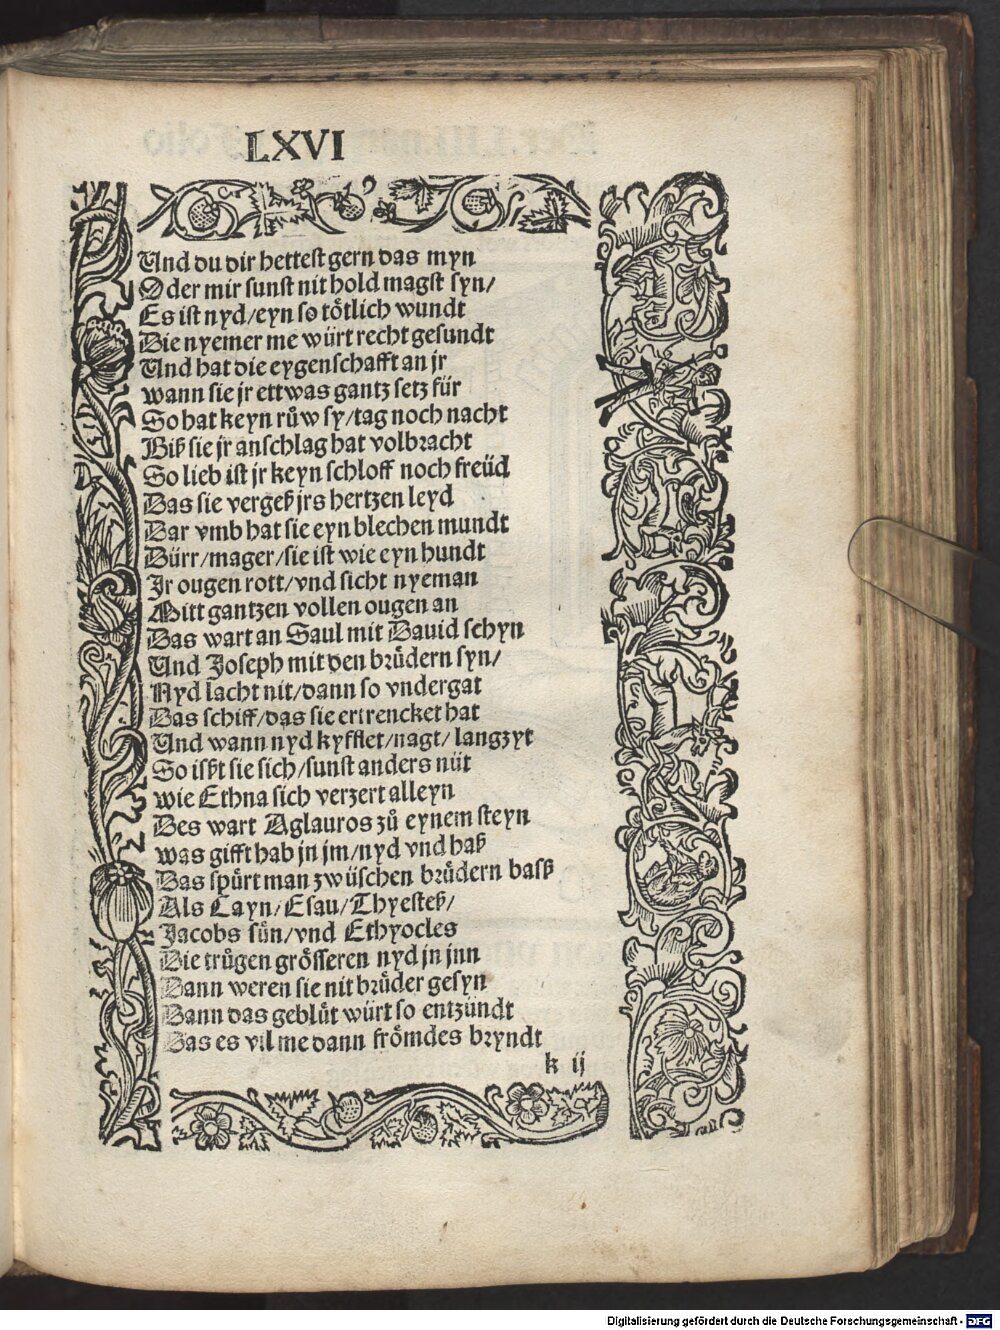 LXVI
Und du dir hettest gern das myn
Oder mir sunst nit hold magst syn/
Es ist nyd/eyn so tötlich wundt
Die nyemer me würt recht gesundt
Und hat die eygenschafft an jr
wann sie jr ettwas gantz setz für
So hat keyn ruͦw sy/tag noch nacht
Biß sie jr anschlag hat volbracht
So lieb ist jr keyn schloff noch freüd
Das sie vergeß jrs hertzen leyd
Dar vmb hat sie eyn blechen mundt
Dürr/mager/sie ist wie eyn hundt
Jr ougen rott/vnd sicht nyeman
Mitt gantzen vollen ougen an
Das wart an Saul mit Dauid schyn
Und Joseph mit den bruͤdern syn/
Nyd lacht nit/dann so vndergat
Das schiff/das sie ertrencket hat
Und wann nyd kyfflet/nagt/langzyt
So ißt sie sich/sunst anders nüt
wie Ethna sich verzert alleyn
Des wart Aglauros zuͦ eynem steyn
was gifft hab jn jm/nyd vnd haß
Das spuͤrt man zwüschen bruͤdern basß
Als Cayn/Esau/Thyesteß/
Jacobs suͤn/vnd Ethyocles
Die truͤgen groͤsseren nyd jn jnn
Dann weren sie nit bruͤder gesyn
Dann das gebluͤt würt so entzündt
Das es vil me dann froͤmdes bryndt
k ij
Digitalisierung gefördert durch die Deutsche Forschungsgemeinschaft - DFG